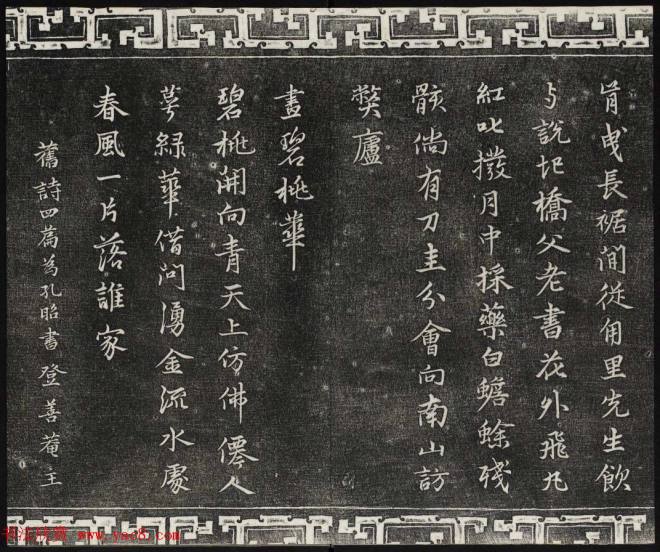 肯曳長裾閒從甪里先生飲
与說圯橋父老書花外飛丸
紅叱撥月中採藥白蟾蜍殘
骸倘有刀圭分會向南山訪
獘廬
畫碧桃華
碧桃開向青天上仿佛僊人
萼綠華借问湧金流水處
春風一片落誰家
舊詩四篇為孔昭書登善菴主
www.yac8.com